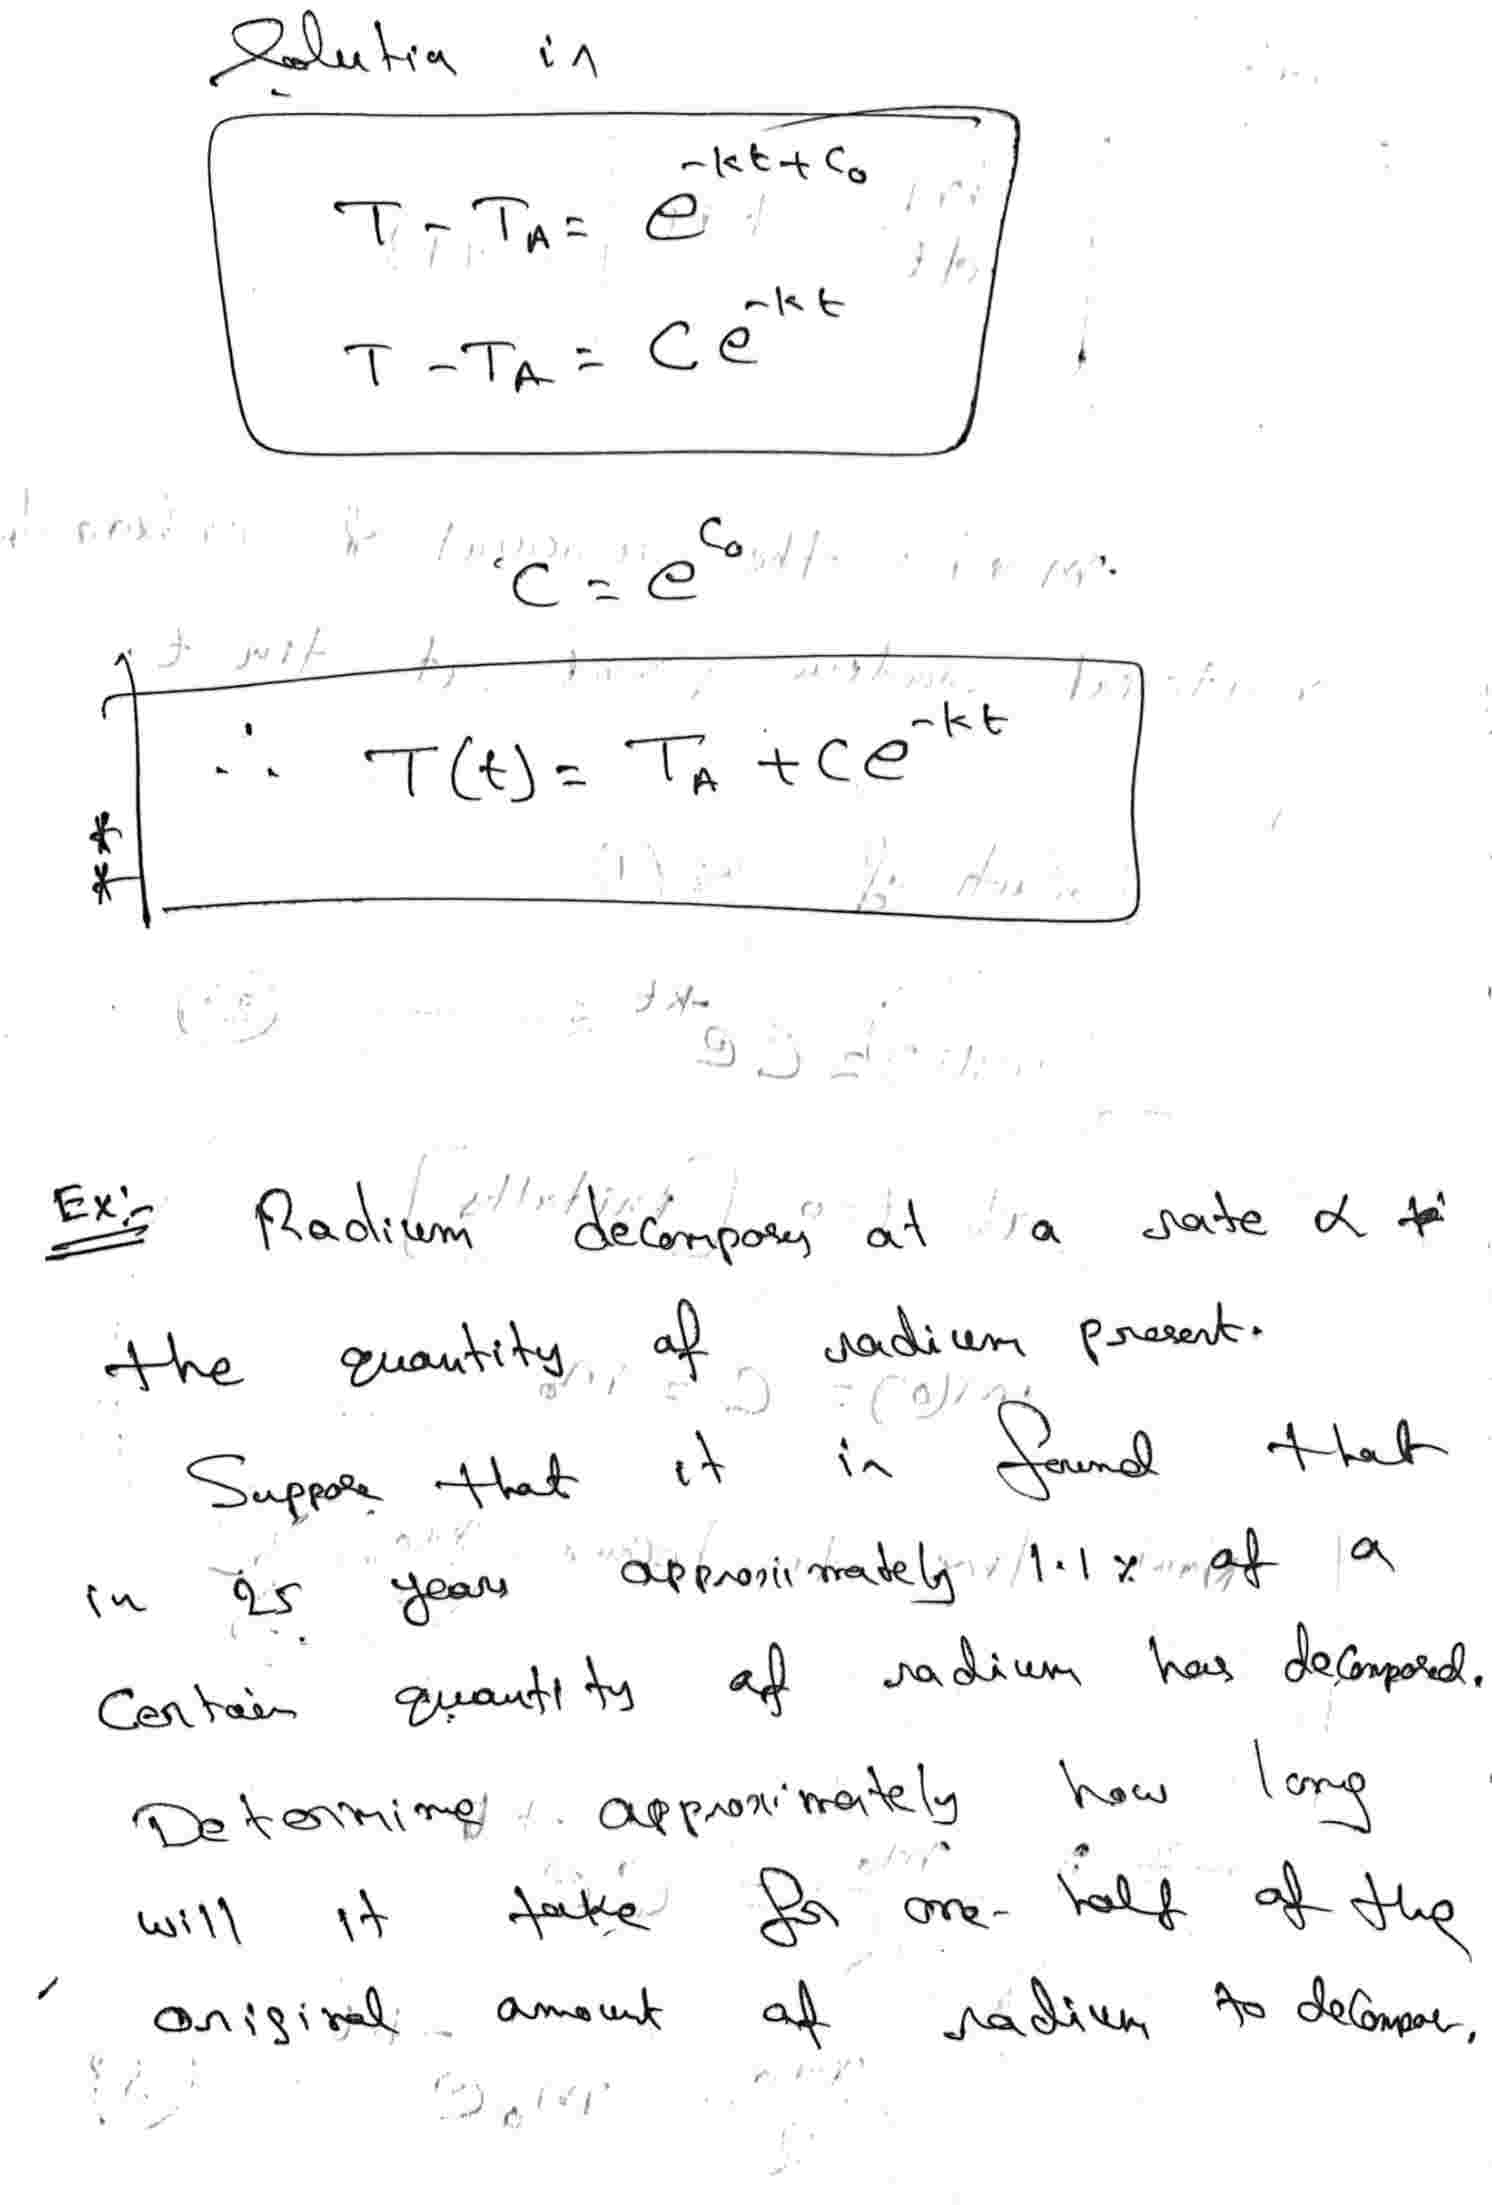 Solution is
T - T_A = e^{-kt + C_0}
T - T_A = C e^{-kt}
C = e^{C_0}
∴ T(t) = T_A + C e^{-kt}
**
Ex:- Radium decomposes at a rate ∝ to
the quantity of radium present.
Suppose that it is found that
in 25 years approximately 1.1% of a
Certain quantity of radium has decomposed.
Determine approximately how long
will it take for one-half of the
original amount of radium to decompose.